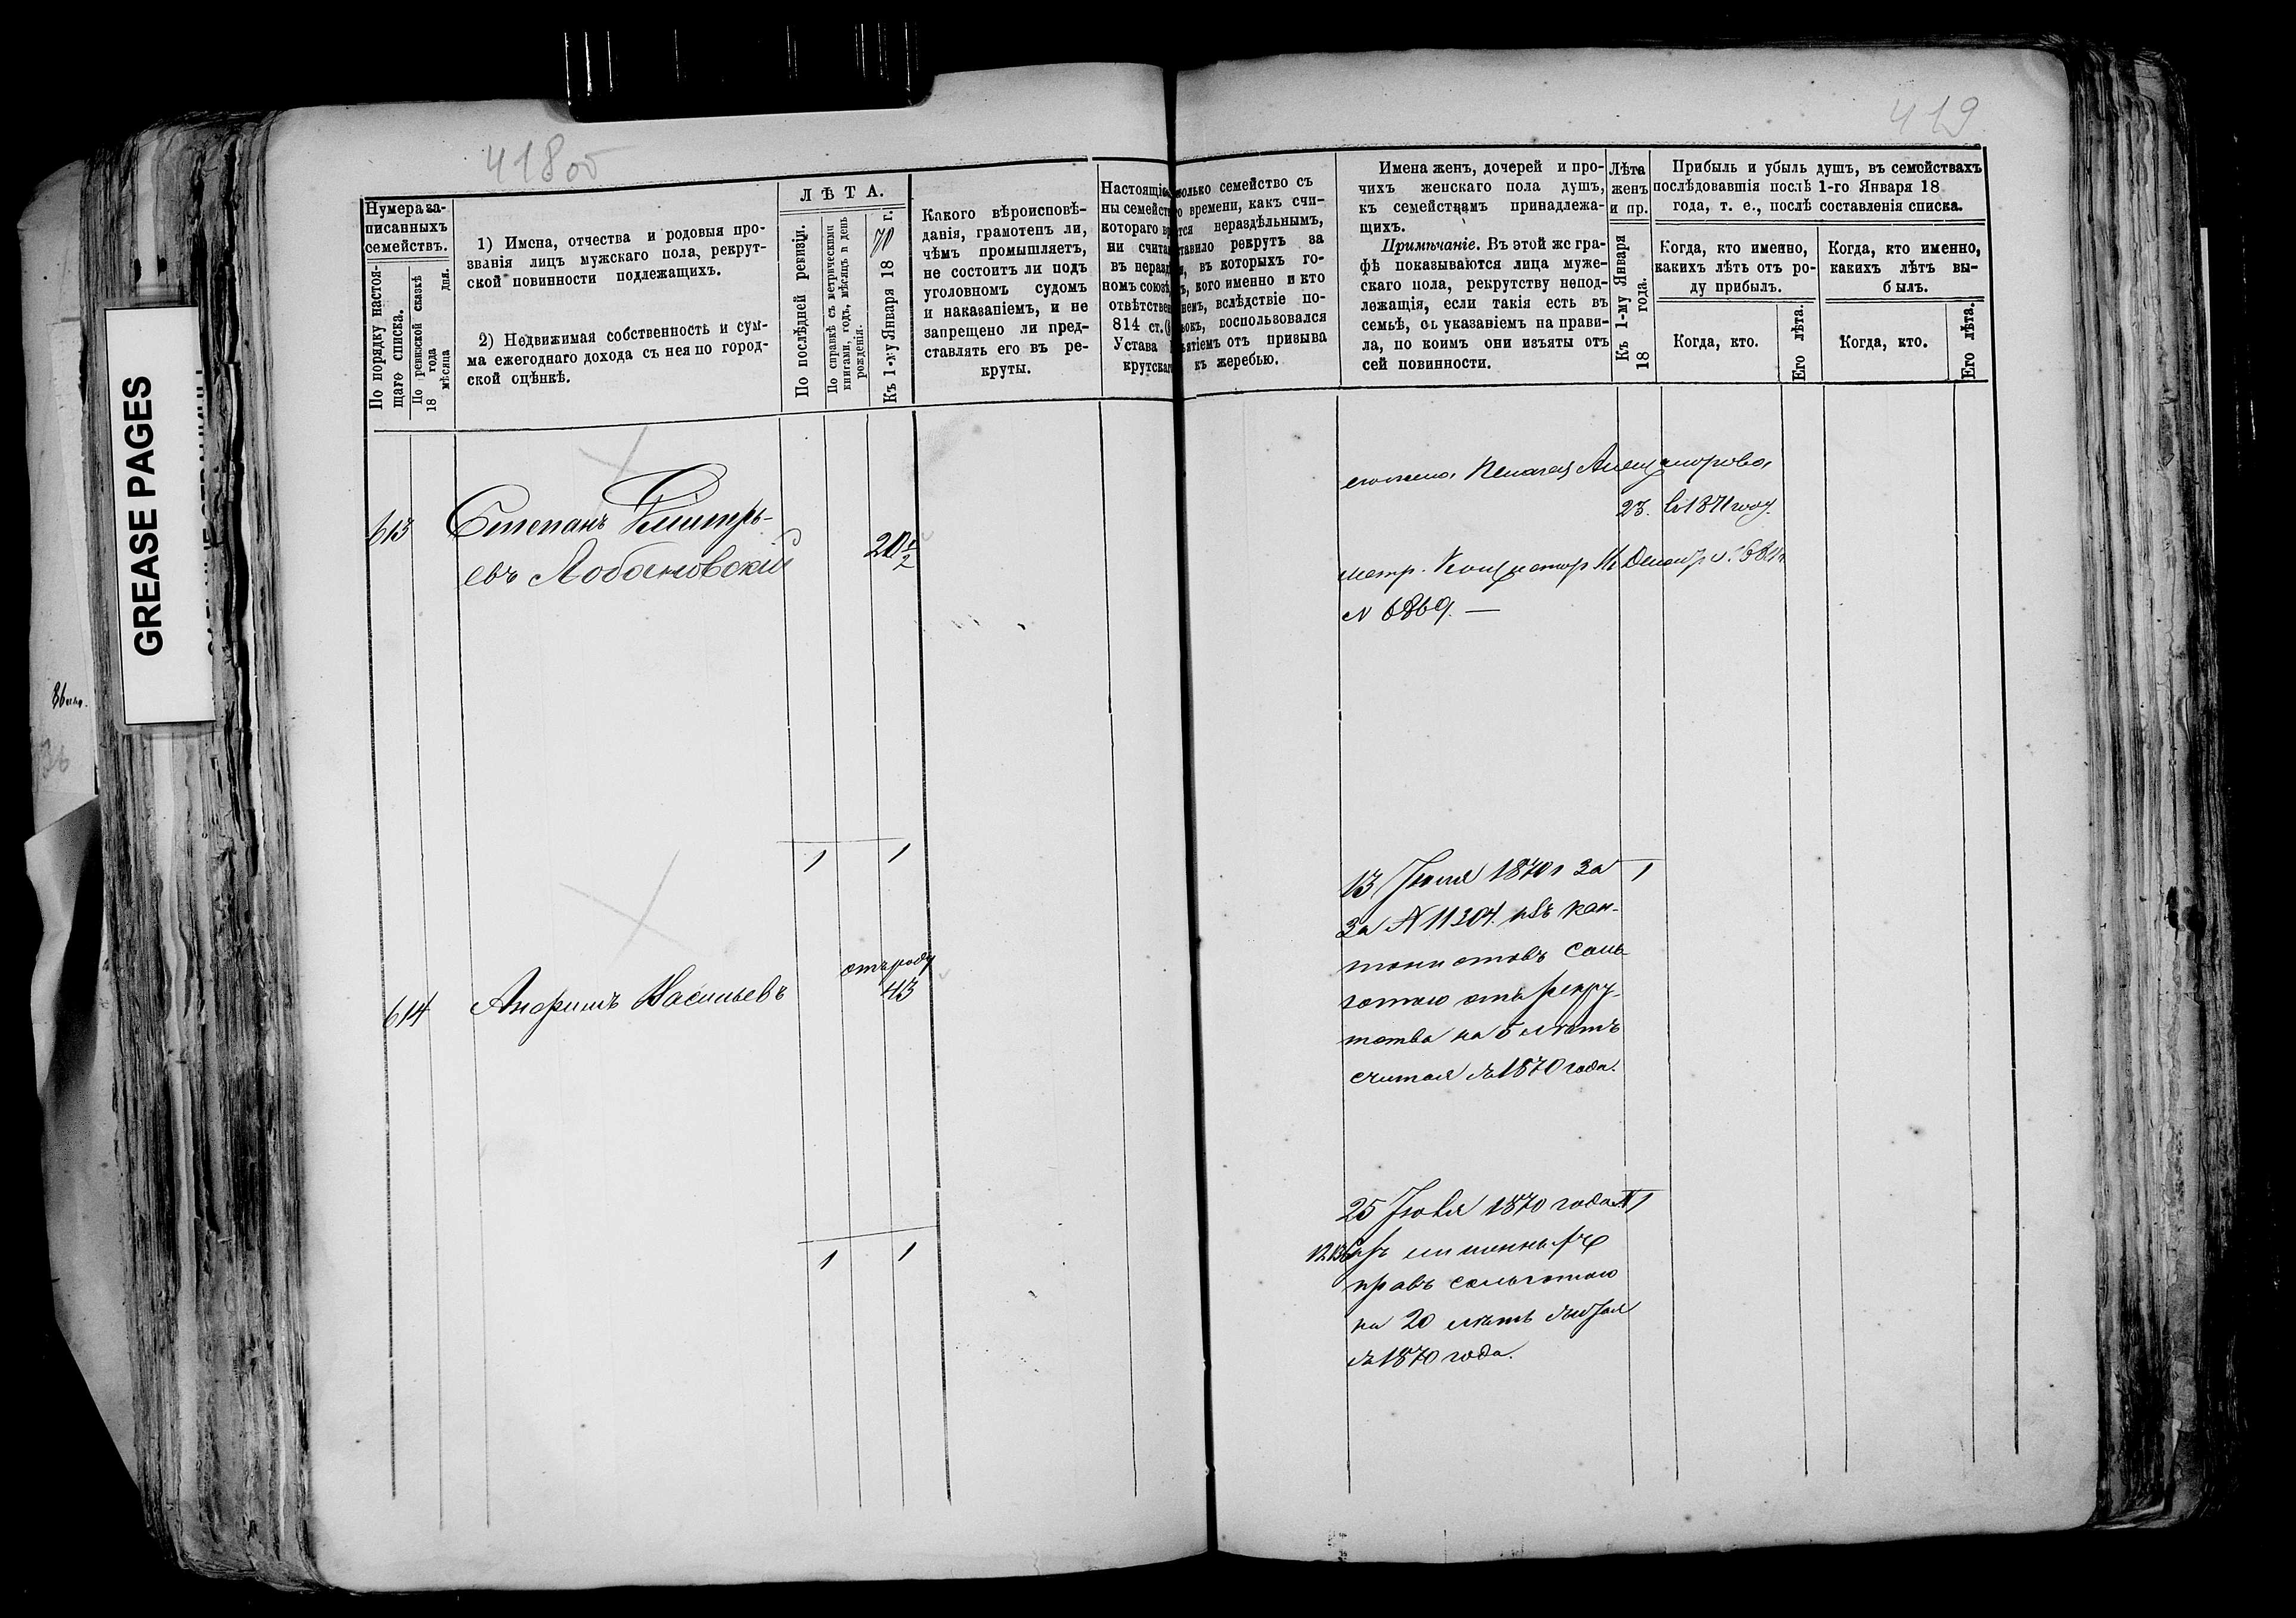 418об
419
GREASE PAGES
Нумера за-
писанныхъ
семействъ.
По порядку настоя-
щаго списка.
По ревизской сказкѣ
18 года
мѣсяца дня.
1) Имена, отчества и родовыя про-
званія лицъ мужскаго пола, рекрут-
ской повинности подлежащихъ.
2) Недвижимая собственность и сум-
ма ежегоднаго дохода съ нея по город-
ской оцѣнкѣ.
ЛѢТА.
По послѣдней ревизіи.
По справкѣ съ метрическими
книгами, годъ, мѣсяцъ и день
рожденія.
Къ 1-му Января 1870 г.
Какого вѣроисповѣ-
данія, грамотенъ ли,
чѣмъ промышляетъ,
не состоитъ ли подъ
уголовномъ судомъ
и наказаніемъ, и не
запрещено ли пред-
ставлять его въ ре-
круты.
Настоящіе
ны семейст
котораго вр
ни счита
въ неразд
номъ союзѣ
отвѣтствен
814 ст.
Устава
крутскаг
олько семейство съ
о времени, какъ счи-
тся нераздѣльнымъ,
тавило рекрутъ за
и, въ которыхъ го-
ъ, кого именно и кто
немъ, вслѣдствіе по-
окъ, воспользовался
ятіемъ отъ призыва
къ жеребью.
Имена женъ, дочерей и про-
чихъ женскаго пола душъ,
къ семействамъ принадлежа-
щихъ.
Примѣчаніе. Въ этой же гра-
фѣ показываются лица муже-
скаго пола, рекрутству непод-
лежащія, если такія есть въ
семьѣ, съ указаніемъ на прави-
ла, по коимъ они изъяты отъ
сей повинности.
Лѣта
женъ
и пр.
Къ 1-му Января
18 года.
Прибыль и убыль душъ, въ семействахъ
послѣдовавшія послѣ 1-го Января 18
года, т. е., послѣ составленія списка.
Когда, кто именно,
какихъ лѣтъ отъ ро-
ду прибылъ.
Когда, кто.
Его лѣта.
Когда, кто именно,
какихъ лѣтъ вы-
былъ.
Когда, кто.
Его лѣта.
613
Степанъ Дмитрь-
евъ Лобановскій
20 1/2
Пелагея
23. въ 1871 году.
N 6869. —
1 1
13 Іюля 1870 г за
за N 11204. изъ кан-
тонистовъ съ ль
готою отъ рекру-
тства на 5 лѣтъ
считая съ 1870 года.
1
614
Васильевъ
отъ роду
43
1 1
25 Іюля 1870 года N
лишенныхъ
правъ съ льготою
на 20 лѣтъ
съ 1870 года.
1